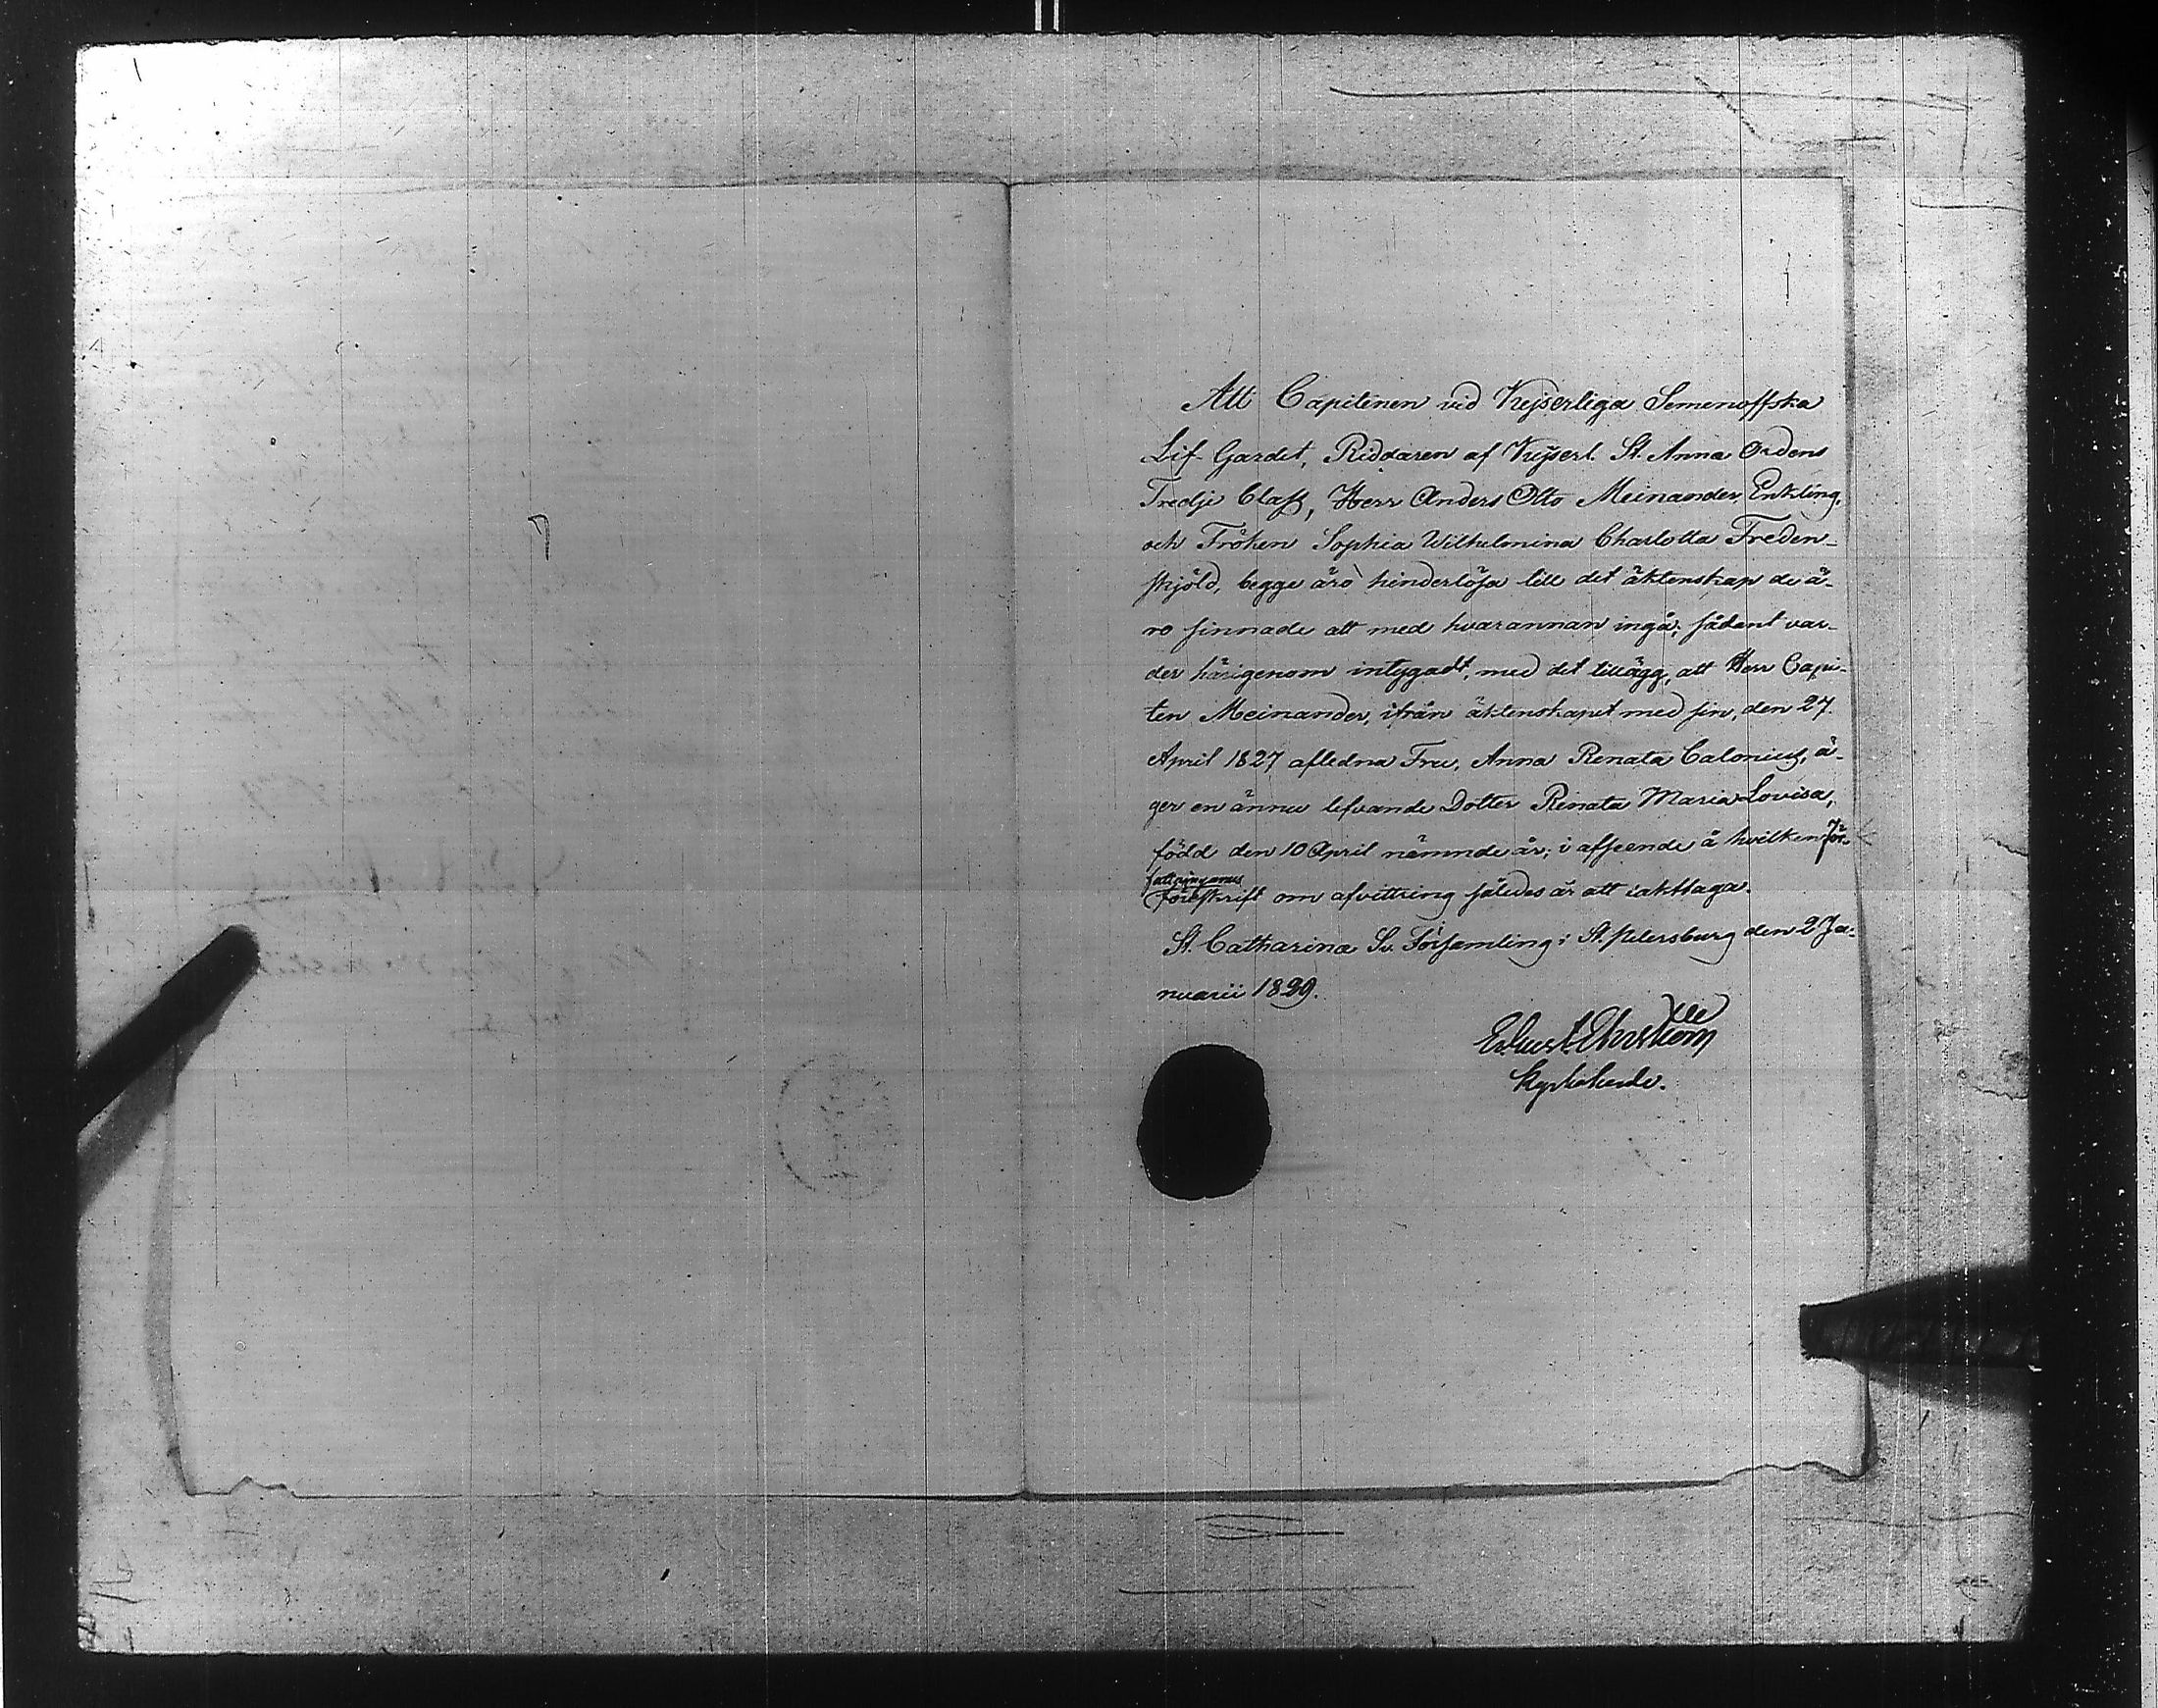 Att Capitenen vid Kejserliga Semenoffska
Lif-Gardet, Riddaren af Kejserl. St. Anna Ordens
Tredje Class, Herr Anders Otto Meinander, Enkling,
och Fröken Sophia Wilhelmina Charlotta Freden-
skjöld, begge äro hinderlösa till det äktenskap de ä-
ro sinnade att med hvarannan ingå; sådant var-
der härigenom intygadt, med det tillägg, att Herr Capi-
ten Meinander, ifrån äktenskapet med sin, den 27.
April 1827 aflednа Fru, Anna Renata Calonius, ä-
ger en ännu lefvande Dotter Renata Maria Lovisa,
född den 10 April nämnde år; i afseende å hvilken för-
fattningarnes
föreskrift om afvittring således är att iakttaga.
St. Catharina Sv. Församling i St. Petersburg den 2 Ja-
nuarii 1829.
Ehrström
Kyrkoherde.